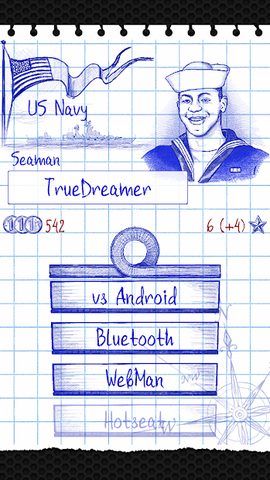 US Navy
Seaman
TrueDreamer
542
6 (+4)
vs Android
Bluetooth
WebMan
Hotseat